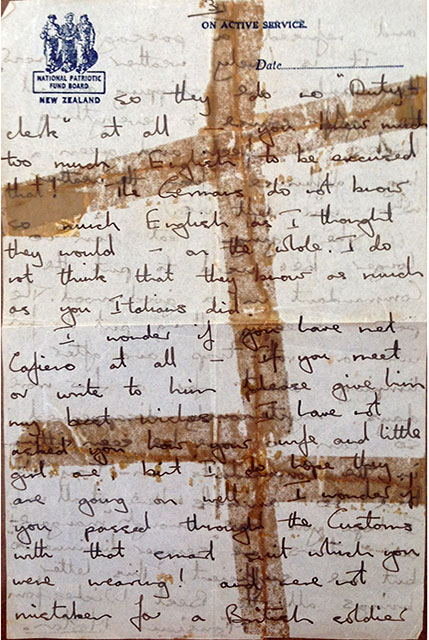 3
ON ACTIVE SERVICE.
NATIONAL PATRIOTIC
FUND BOARD
NEW ZEALAND
Date
so they do no "Duty
clerk" at all – you know much
too much English to be excused
that! The Germans do not know
so much English as I thought
they would – on the whole. I do
not think that they know as much
as you Italians did.
I wonder if you have met
Cafiero at all – if you meet
or write to him please give him
my best wishes. I have not
asked you how your wife and little
girl are, but I do hope they
are going on well. I wonder if
you passed through the Customs
with that smart suit which you
were wearing! and were not
mistaken for a British soldier